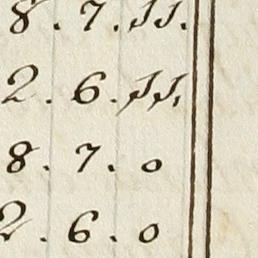 8. 7. JJ.
2. 6. JJ.
8. 7. 0
2. 6. 0